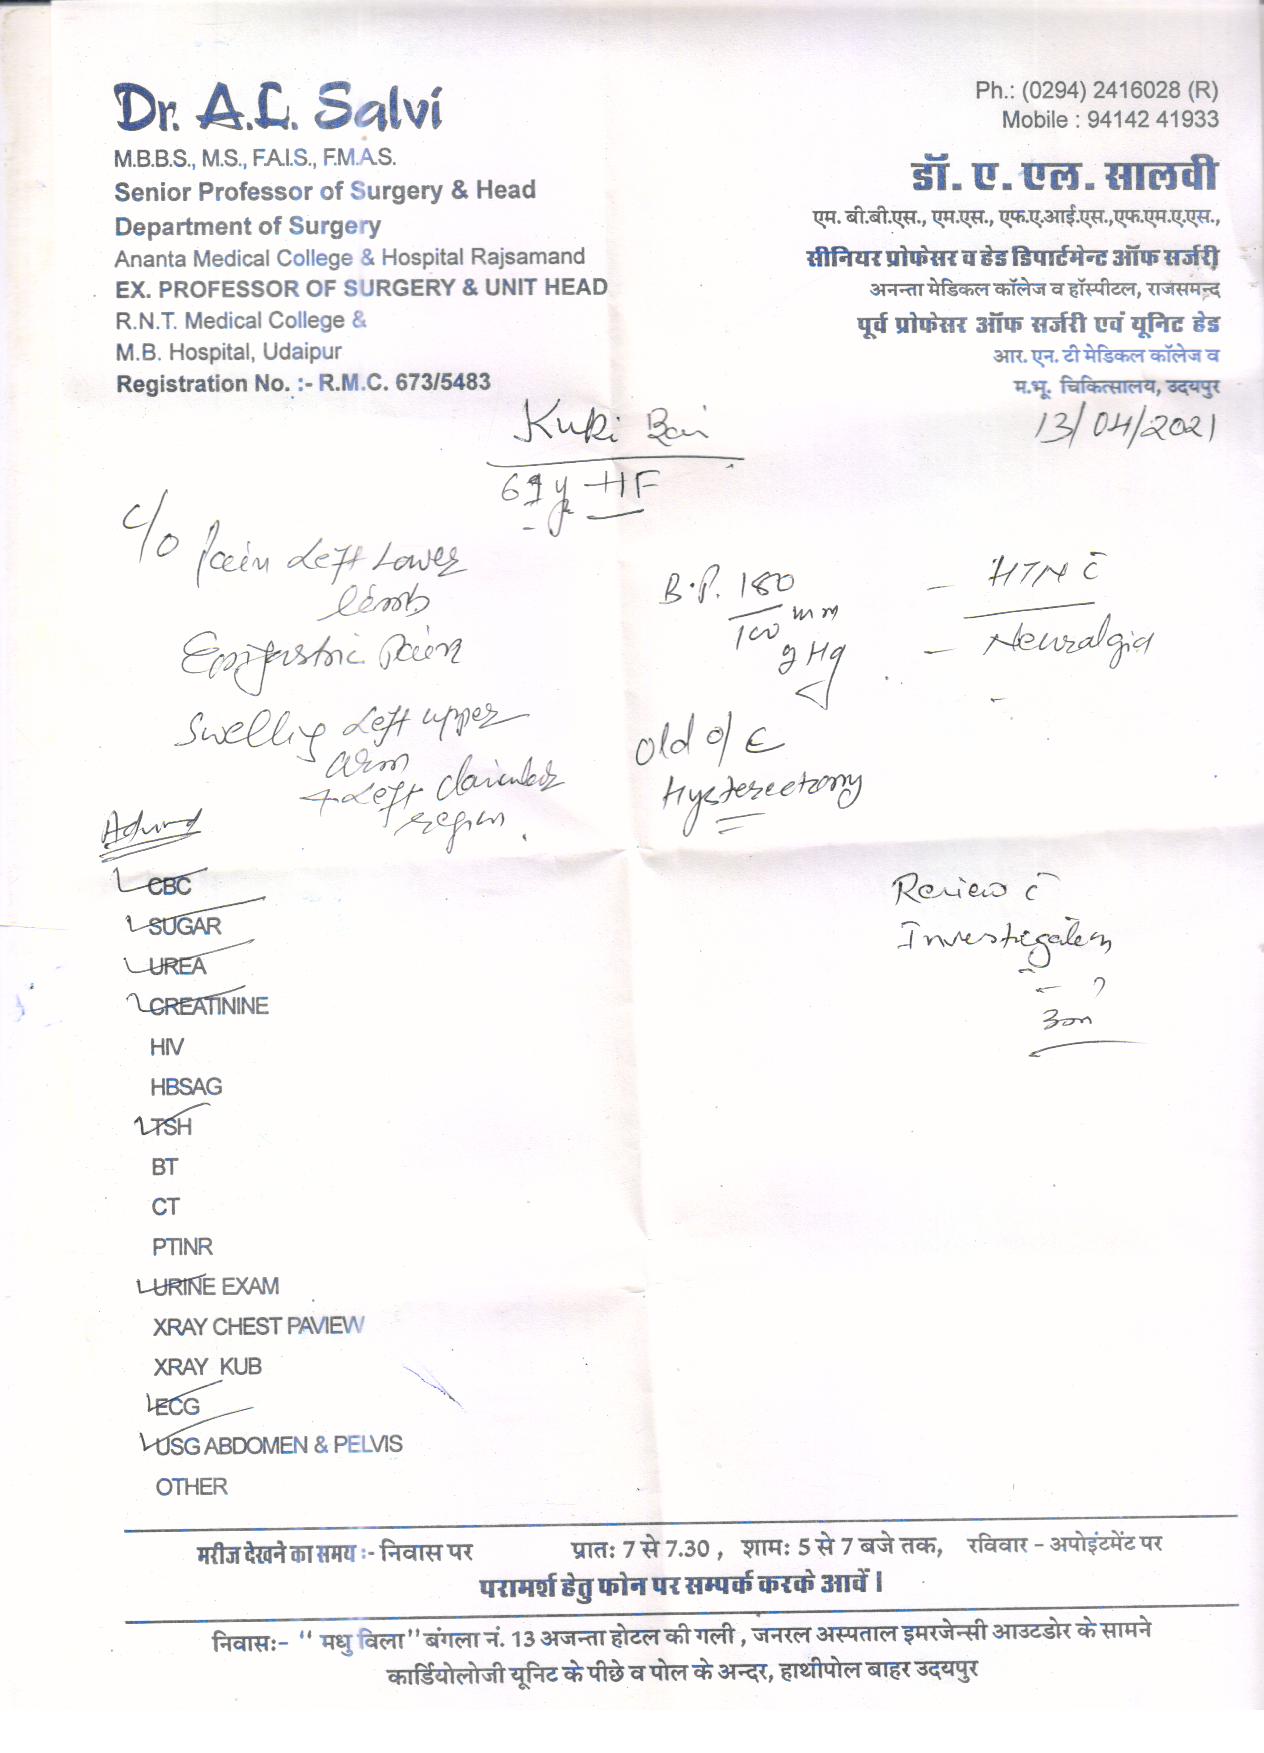 Dr. A.L. Salvi
M.B.B.S., M.S., F.A.I.S., F.M.A.S.
Senior Professor of Surgery & Head
Department of Surgery
Ananta Medical College & Hospital Rajsamand
EX. PROFESSOR OF SURGERY & UNIT HEAD
R.N.T. Medical College &
M.B. Hospital, Udaipur
Registration No. :- R.M.C. 673/5483
Ph.: (0294) 2416028 (R)
Mobile : 94142 41933
डॉ. ए. एल. सालवी
एम. बी.बी.एस., एम.एस., एफ.ए.आई.एस.,एफ.एम.ए.एस.,
सीनियर प्रोफेसर व हेड डिपार्टमेन्ट ऑफ सर्जरी
अनन्ता मेडिकल कॉलेज व हॉस्पीटल, राजसमन्द
पूर्व प्रोफेसर ऑफ सर्जरी एवं यूनिट हेड
आर. एन. टी मेडिकल कॉलेज व
म.भू. चिकित्सालय, उदयपुर
13/04/2021
Kuki Bai
HF
C/O Pain Left Lower
limb
Epigastric Pain
Swelling Left upper
arm
+ Left clavicular
region.
B.P. 180
100 mm
g Hg
- HTN c̄
- Neuralgia
Old o/c
Hysterectomy
Advised
CBC
SUGAR
UREA
CREATININE
HIV
HBSAG
TSH
BT
CT
PTINR
URINE EXAM
XRAY CHEST PAVIEW
XRAY KUB
ECG
USG ABDOMEN & PELVIS
OTHER
Review c̄
Investigation
मरीज देखने का समय :- निवास पर प्रातः 7 से 7.30 , शामः 5 से 7 बजे तक, रविवार - अपोइंटमेंट पर
परामर्श हेतु फोन पर सम्पर्क करके आवें ।
निवासः- " मधु विला" बंगला नं. 13 अजन्ता होटल की गली , जनरल अस्पताल इमरजेन्सी आउटडोर के सामने
कार्डियोलोजी यूनिट के पीछे व पोल के अन्दर, हाथीपोल बाहर उदयपुर